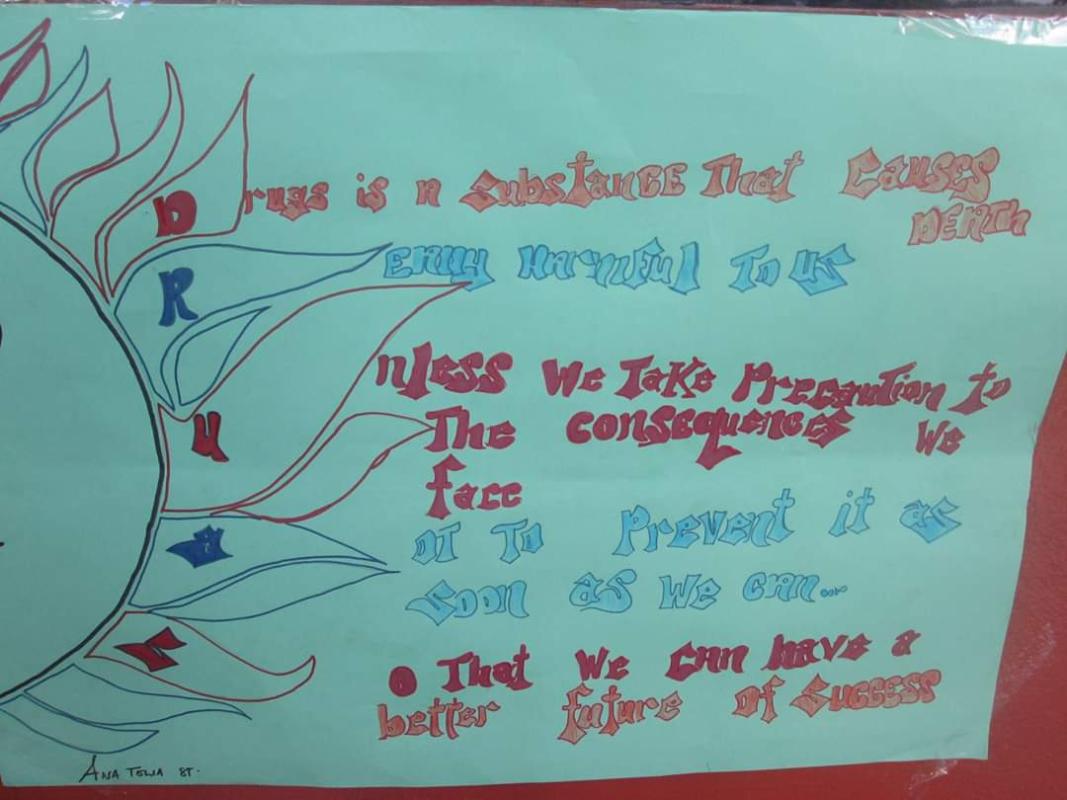 Drugs is a substance That Causes
DEATH
REALLY HARMFUL To US
Unless We Take Precaution to
The consequences We
face
GOT To Prevent it as
Soon as We can...
So That We Can have a
better future of Success
ANA TOWA 8T.